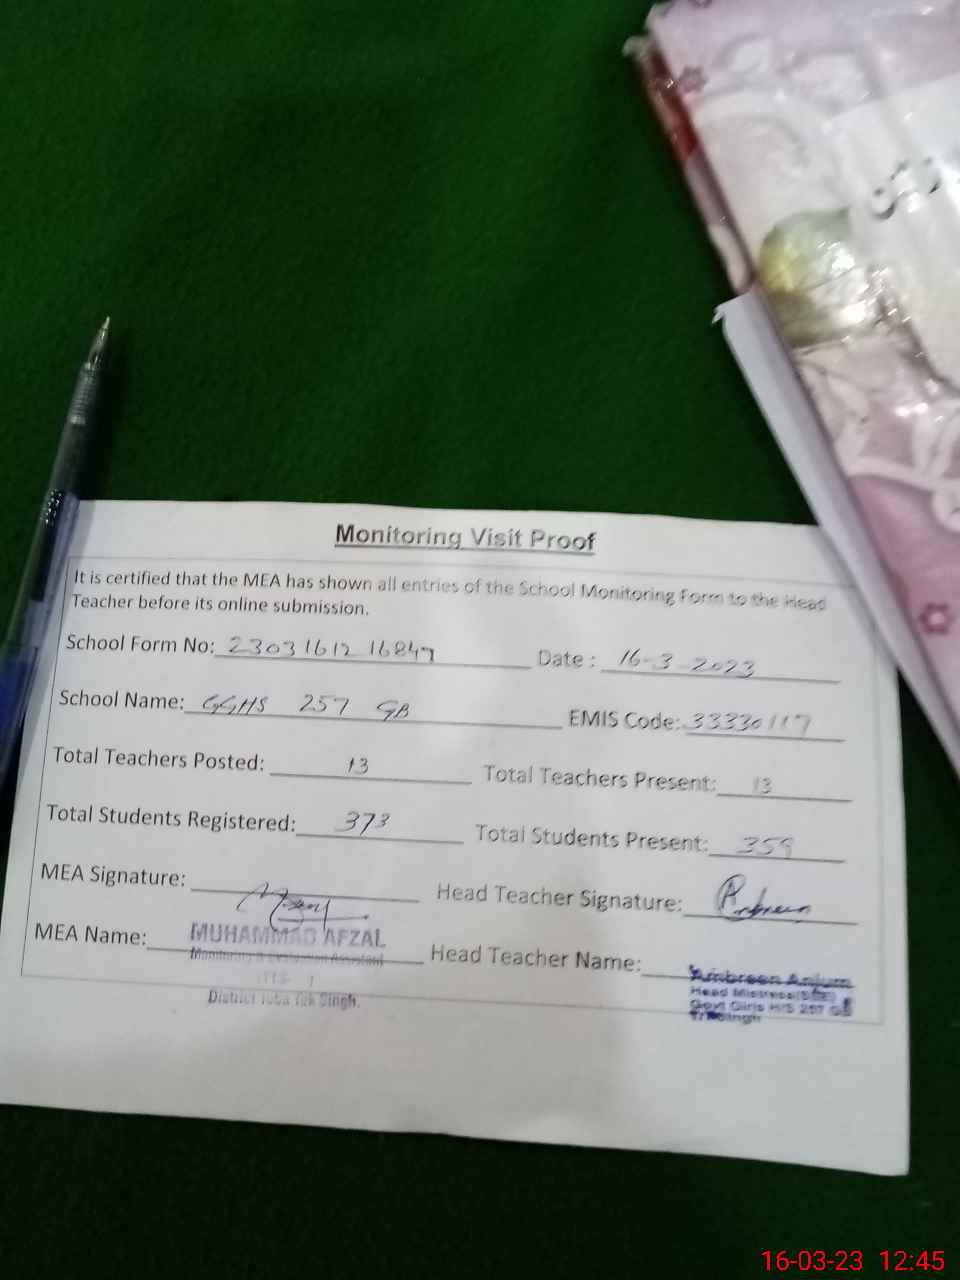 Monitoring Visit Proof
It is certified that the MEA has shown all entries of the School Monitoring Form to the Head
Teacher before its online submission.
School Form No: 23031612 16847 Date : 16-3-2023
School Name: GGHS 257 GB EMIS Code: 33330117
Total Teachers Posted: 13 Total Teachers Present: 13
Total Students Registered: 373 Total Students Present: 359
MEA Signature: Head Teacher Signature:
MEA Name: MUHAMMAD AFZAL Head Teacher Name: Ambreen Anjum
Monitoring & Evaluation Assistant
Head Mistress
District Toba Tek Singh.
Govt Girls H/S 257 GB
T.T.Singh
16-03-23 12:45